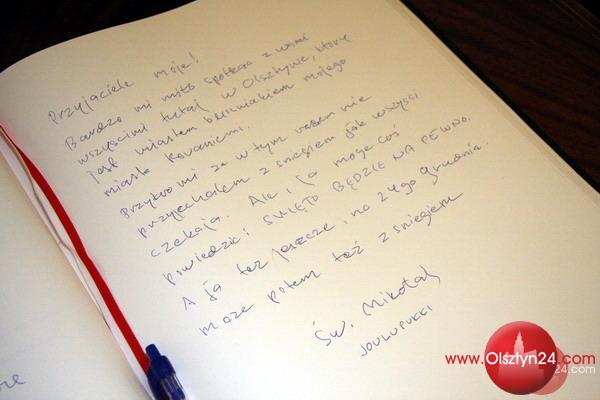 Przyjaciele moje!
Bardzo mi miło spotkac z wami
wszyscimi tutaj w Olsztynie, który
jest miastem bliźniakiem mojego
miasta Rovaniemi.
Przykro mi że w tym razem nie
przyjechałem z śniegem jak wszyści
czekają. Ale, ja moge coś
powiedzić: ŚWIĘTO BĘDZIE NA PEWNO.
A ja też jeszcze, na 24go grudnia.
może potem też z śniegiem
Św. Mikołaj
JOULUPUKKI
www.Olsztyn24.com
24.com